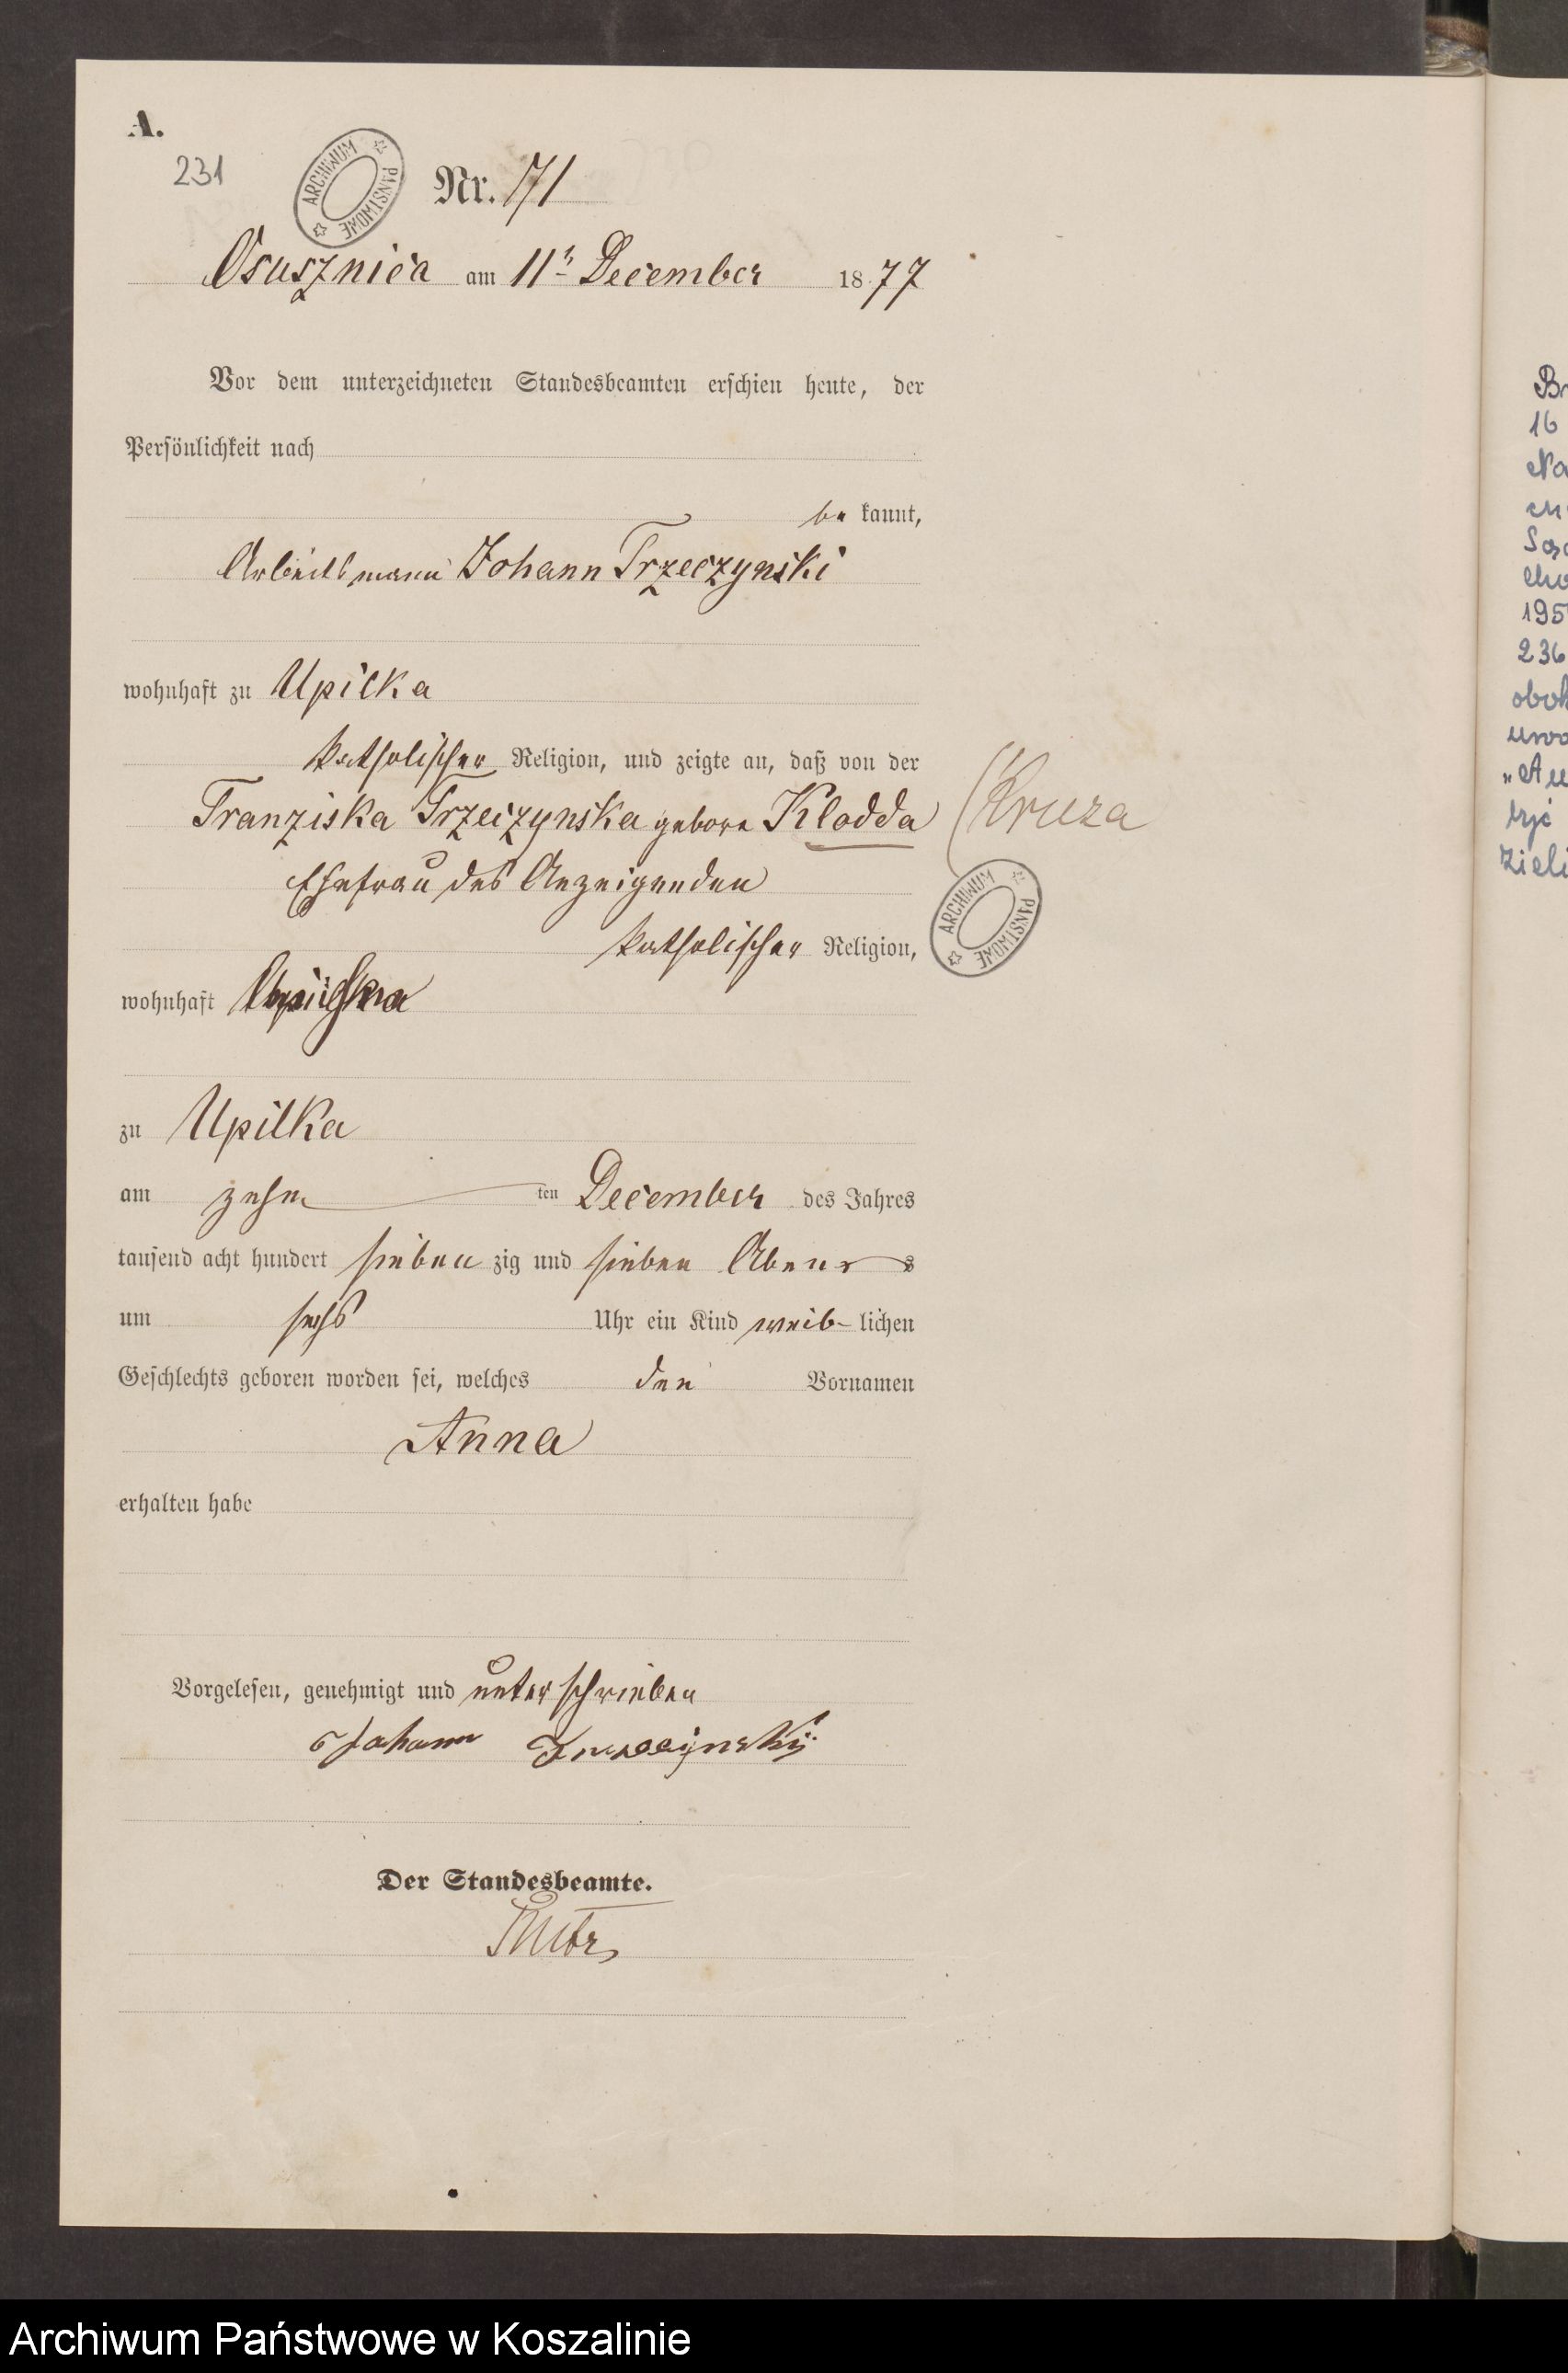 A.
231
ARCHIWUM PAŃSTWOWE
Nr. 171
Osusznica am 11t December 1877
Vor dem unterzeichneten Standesbeamten erschien heute, der
Persönlichkeit nach
be kannt,
Arbeitsmann Johann Trzeczynski
wohnhaft zu Upilka
katholischer Religion, und zeigte an, daß von der
Franziska Trzeczynska geborne Klodda (Kruza
Ehefrau des Anzeigenden
ARCHIWUM PAŃSTWOWE
katholischer Religion,
wohnhaft
zu Upilka
am zehn ten December des Jahres
tausend acht hundert sieben zig und sieben Abends
um sechs Uhr ein Kind weib- lichen
Geschlechts geboren worden sei, welches den Vornamen
Anna
erhalten habe
Vorgelesen, genehmigt und unterschrieben
Johann
Der Standesbeamte.
16
195
236
Archiwum Państwowe w Koszalinie